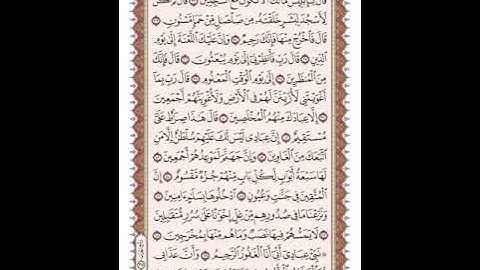 قَالَ يَٰٓإِبْلِيسُ مَا لَكَ أَلَّا تَكُونَ مَعَ ٱلسَّٰجِدِينَ ۝ قَالَ لَمْ أَكُن
لِّأَسْجُدَ لِبَشَرٍ خَلَقْتَهُۥ مِن صَلْصَٰلٍ مِّنْ حَمَإٍ مَّسْنُونٍ ۝
قَالَ فَٱخْرُجْ مِنْهَا فَإِنَّكَ رَجِيمٌ ۝ وَإِنَّ عَلَيْكَ ٱللَّعْنَةَ إِلَىٰ يَوْمِ
ٱلدِّينِ ۝ قَالَ رَبِّ فَأَنظِرْنِىٓ إِلَىٰ يَوْمِ يُبْعَثُونَ ۝ قَالَ فَإِنَّكَ
مِنَ ٱلْمُنظَرِينَ ۝ إِلَىٰ يَوْمِ ٱلْوَقْتِ ٱلْمَعْلُومِ ۝ قَالَ رَبِّ بِمَآ
أَغْوَيْتَنِى لَأُزَيِّنَنَّ لَهُمْ فِى ٱلْأَرْضِ وَلَأُغْوِيَنَّهُمْ أَجْمَعِينَ
۝ إِلَّا عِبَادَكَ مِنْهُمُ ٱلْمُخْلَصِينَ ۝ قَالَ هَٰذَا صِرَٰطٌ عَلَىَّ
مُسْتَقِيمٌ ۝ إِنَّ عِبَادِى لَيْسَ لَكَ عَلَيْهِمْ سُلْطَٰنٌ إِلَّا مَنِ
ٱتَّبَعَكَ مِنَ ٱلْغَاوِينَ ۝ وَإِنَّ جَهَنَّمَ لَمَوْعِدُهُمْ أَجْمَعِينَ ۝
لَهَا سَبْعَةُ أَبْوَٰبٍ لِّكُلِّ بَابٍ مِّنْهُمْ جُزْءٌ مَّقْسُومٌ ۝ إِنَّ
ٱلْمُتَّقِينَ فِى جَنَّٰتٍ وَعُيُونٍ ۝ ٱدْخُلُوهَا بِسَلَٰمٍ ءَامِنِينَ ۝
وَنَزَعْنَا مَا فِى صُدُورِهِم مِّنْ غِلٍّ إِخْوَٰنًا عَلَىٰ سُرُرٍ مُّتَقَٰبِلِينَ
۝ لَا يَمَسُّهُمْ فِيهَا نَصَبٌ وَمَا هُم مِّنْهَا بِمُخْرَجِينَ ۝
۞ نَبِّئْ عِبَادِىٓ أَنِّىٓ أَنَا ٱلْغَفُورُ ٱلرَّحِيمُ ۝ وَأَنَّ عَذَابِى